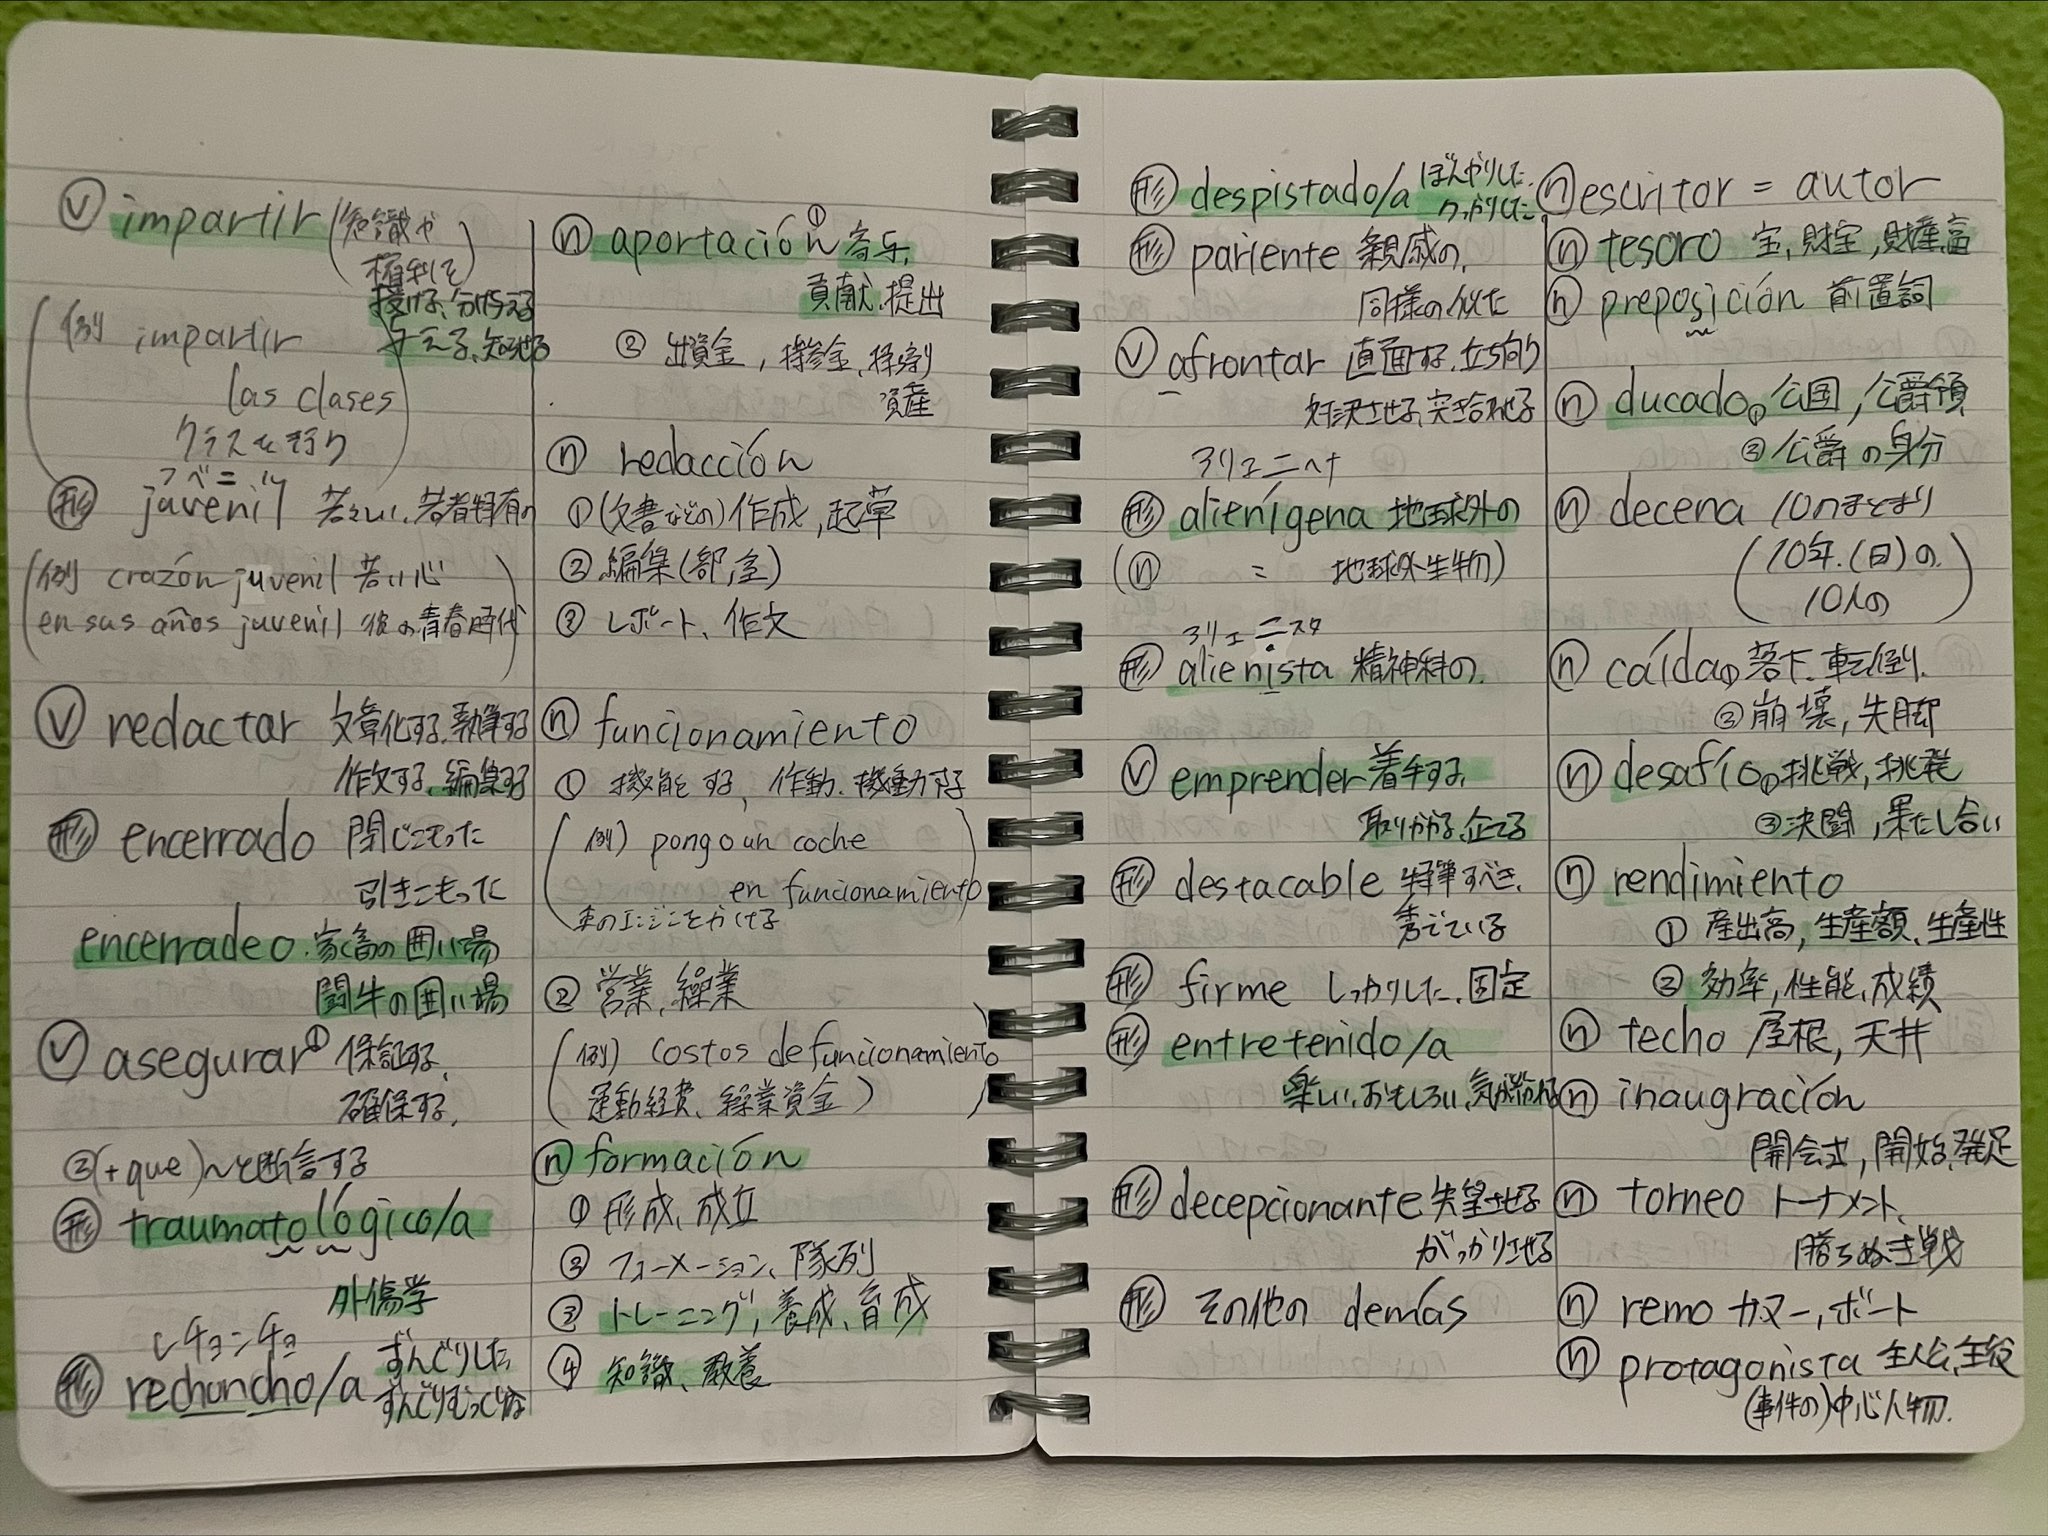 Ⓥ impartir (知識や
権利を)
授ける、分け与える
与える、知らせる
(例 impartir
las clases
クラスを行う)
フベニル
㊒形 juvenil 若々しい、若者特有の
(例 crazón juvenil 若い心
en sus años juvenil 彼の青春時代)
Ⓥ redactar 文章化する、執筆する
作文する、編集する
形 encerrado 閉じこもった
引きこもった
encerradeo・家畜の囲い場
闘牛の囲い場
Ⓥ asegurar ① 保証する、
確保する,
②(+ que)〜と断言する
形 traumatológico/a
外傷学
レチョンチョ
形 rechoncho/a ずんぐりした
ずんぐりむっくりな
ⓝ aportación ① 寄与,
貢献、提出
② 出資金,
資産
ⓝ redacción
①(文書などの)作成,起草
② 編集(部,室)
③ レポート、作文
ⓝ funcionamiento
① 機能する、作動、機動する
(例) pongo un coche
en funcionamiento
車のエンジンをかける)
② 営業、操業
(例) costos de funcionamiento
運動経費、操業資金)
ⓝ formación
① 形成、成立
② フォーメーション、隊列
③ トレーニング, 養成、育成
④ 知識、教養
形 despistado/a ぼんやりした.
うっかりした
形 pariente 親戚の,
同様の 似た
Ⓥ afrontar 直面する、立ち向う
対決させる、突き合わせる
アリエニヘナ
形 alienígena 地球外の
(ⓝ = 地球外生物)
アリエニスタ
形 alienista 精神科の,
Ⓥ emprender 着手する,
取りかかる、企てる
形 destacable 特筆すべき,
秀でている
形 firme しっかりした、固定
形 entretenido/a
楽しい、おもしろい、気が紛れる
形 decepcionante 失望させる
がっかりさせる
形 その他の demás
ⓝ escritor = autor
ⓝ tesoro 宝,財宝,財産,富
ⓝ preposición 前置詞
ⓝ ducado ① 公国, 公爵領
② 公爵の身分
ⓝ decena 10のまとまり
(10年.(日)の,
10人の)
ⓝ caída ① 落下、転倒,
② 崩壊, 失脚
ⓝ desafío ① 挑戦, 挑発
② 決闘, 果たし合い
ⓝ rendimiento
① 産出高, 生産額、生産性
② 効率, 性能、成績
ⓝ techo 屋根, 天井
ⓝ inaugración
開会式, 開始、発足
ⓝ torneo トーナメント、
勝ちぬき戦
ⓝ remo カヌー, ボート
ⓝ protagonista 主人公、主役
(事件の)中心人物.